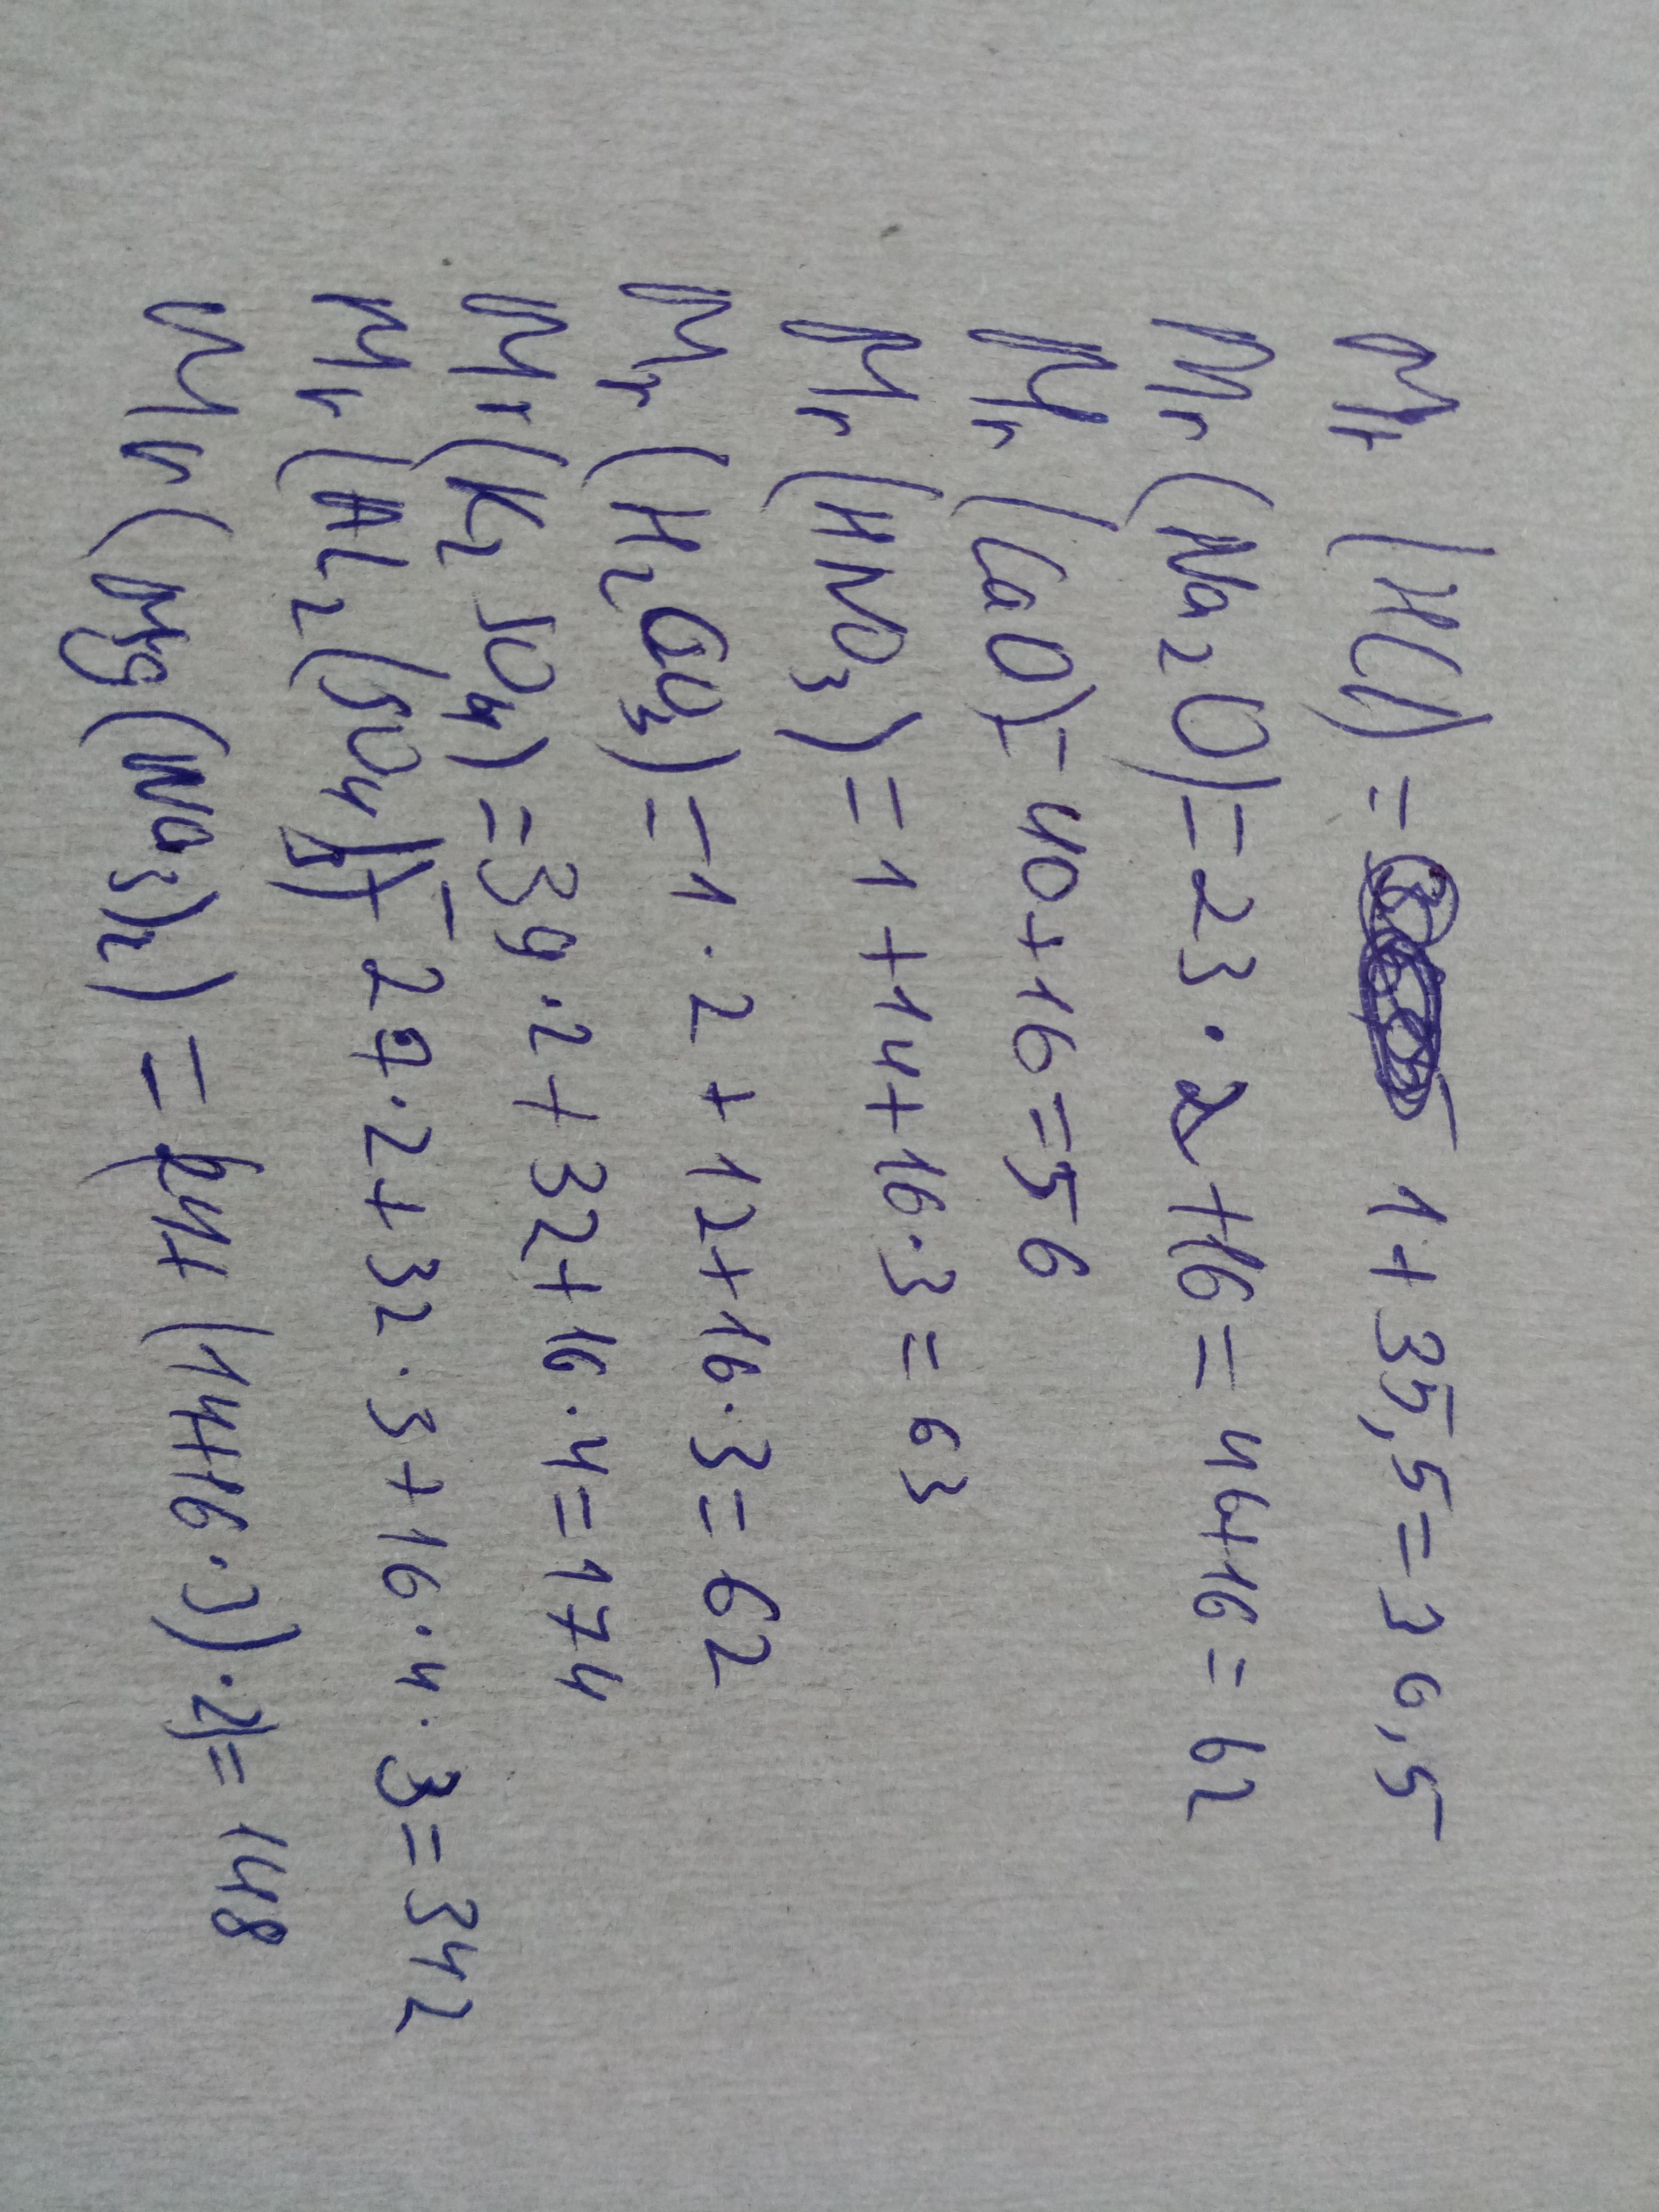 Mr (HCl) = 1 + 35,5 = 36,5
Mr (Na₂O) = 23 · 2 + 16 = 46 + 16 = 62
Mr (CaO) = 40 + 16 = 56
Mr (HNO₃) = 1 + 14 + 16 · 3 = 63
Mr (H₂CO₃) = 1 · 2 + 12 + 16 · 3 = 62
Mr (K₂SO₄) = 39 · 2 + 32 + 16 · 4 = 174
Mr (Al₂(SO₄)₃) = 27 · 2 + 32 · 3 + 16 · 4 · 3 = 342
Mr (Mg(NO₃)₂) = 24 + (14 + 16 · 3) · 2 = 148